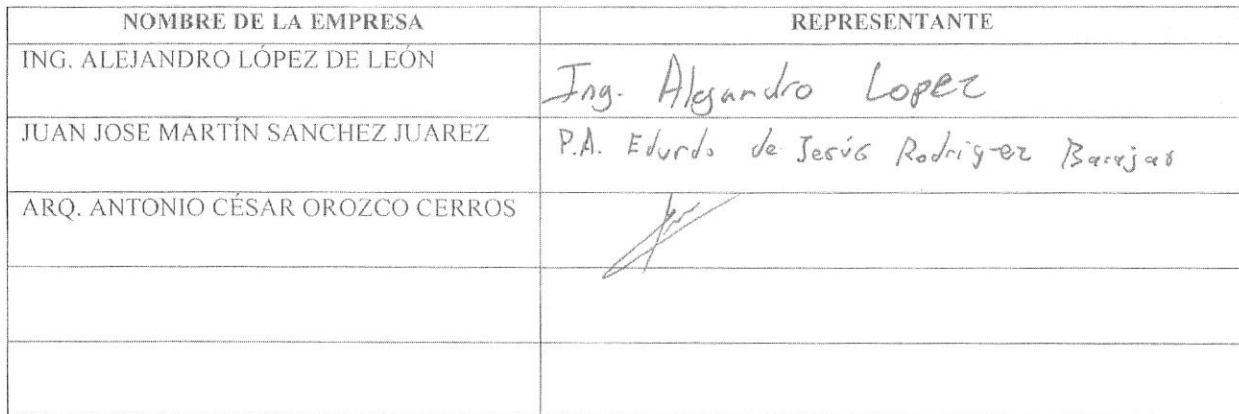 NOMBRE DE LA EMPRESA
REPRESENTANTE
ING. ALEJANDRO LÓPEZ DE LEÓN
Ing. Alejandro Lopez
JUAN JOSE MARTÍN SANCHEZ JUAREZ
P.A. Edurdo de Jesús Rodrig-ez Barajas
ARQ. ANTONIO CÉSAR OROZCO CERROS